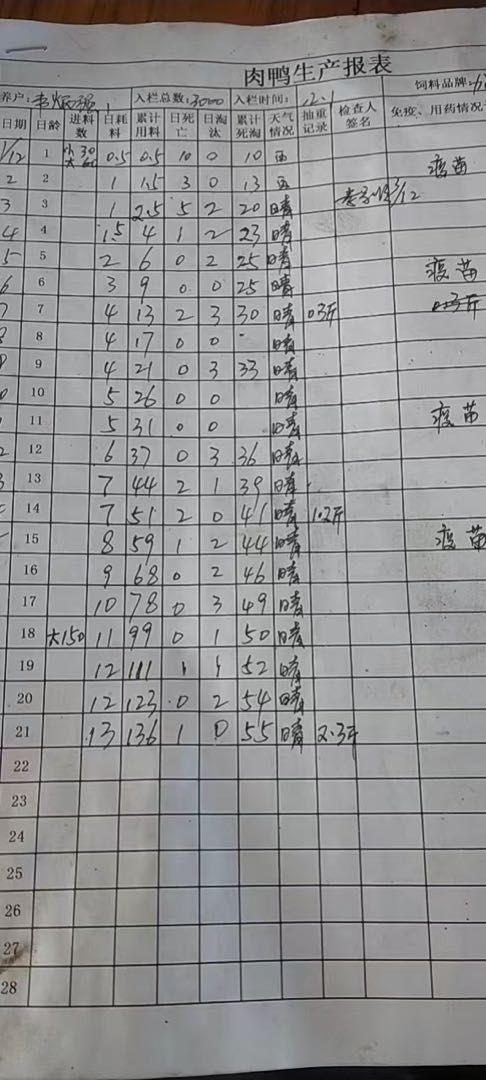 肉鸭生产报表
养户: 入栏总数:3000 入栏时间: 12.1 饲料品牌:
日期 日龄 进料数 日耗料 累计用料 日死亡 日淘汰 累计死淘 天气情况 抽重记录 检查人签名 免疫、用药情况
1/12 1 小30 大60 0.5 0.5 10 0 10 疫苗
2 2 1 1.5 3 0 13
3 3 1 2.5 5 2 20 晴 3/12
4 4 1.5 4 1 2 23 晴
5 5 2 6 0 2 25 晴 疫苗
6 6 3 9 0 0 25 晴
7 7 4 13 2 3 30 晴 0.3斤 0.3斤
8 8 4 17 0 0 - 晴
9 4 21 0 3 33 晴
0 10 5 26 0 0 晴
1 11 5 31 0 0 晴 疫苗
2 12 6 37 0 3 36 晴
3 13 7 44 2 1 39 晴
14 7 51 2 0 41 晴 1.2斤
15 8 59 1 2 44 晴 疫苗
16 9 68 0 2 46 晴
17 10 78 0 3 49 晴
18 大150 11 99 0 1 50 晴
19 12 111 1 1 52 晴
20 12 123 0 2 54 晴
21 13 136 1 0 55 晴 2.3斤
22
23
24
25
26
27
28